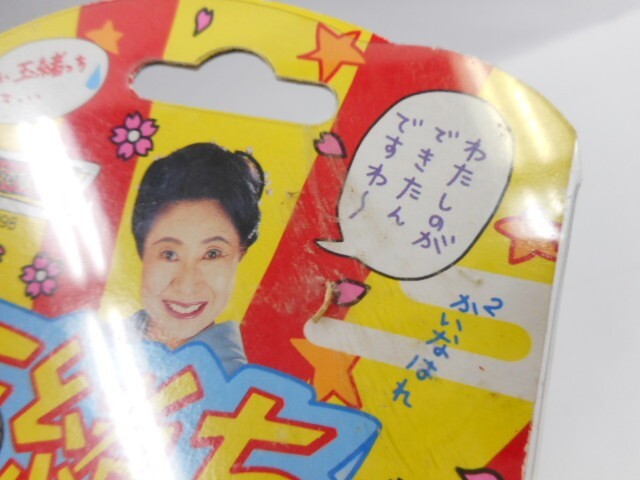 玉緒っち
わたしのが
できたん
ですわ〜
かいなはれ
緒っち